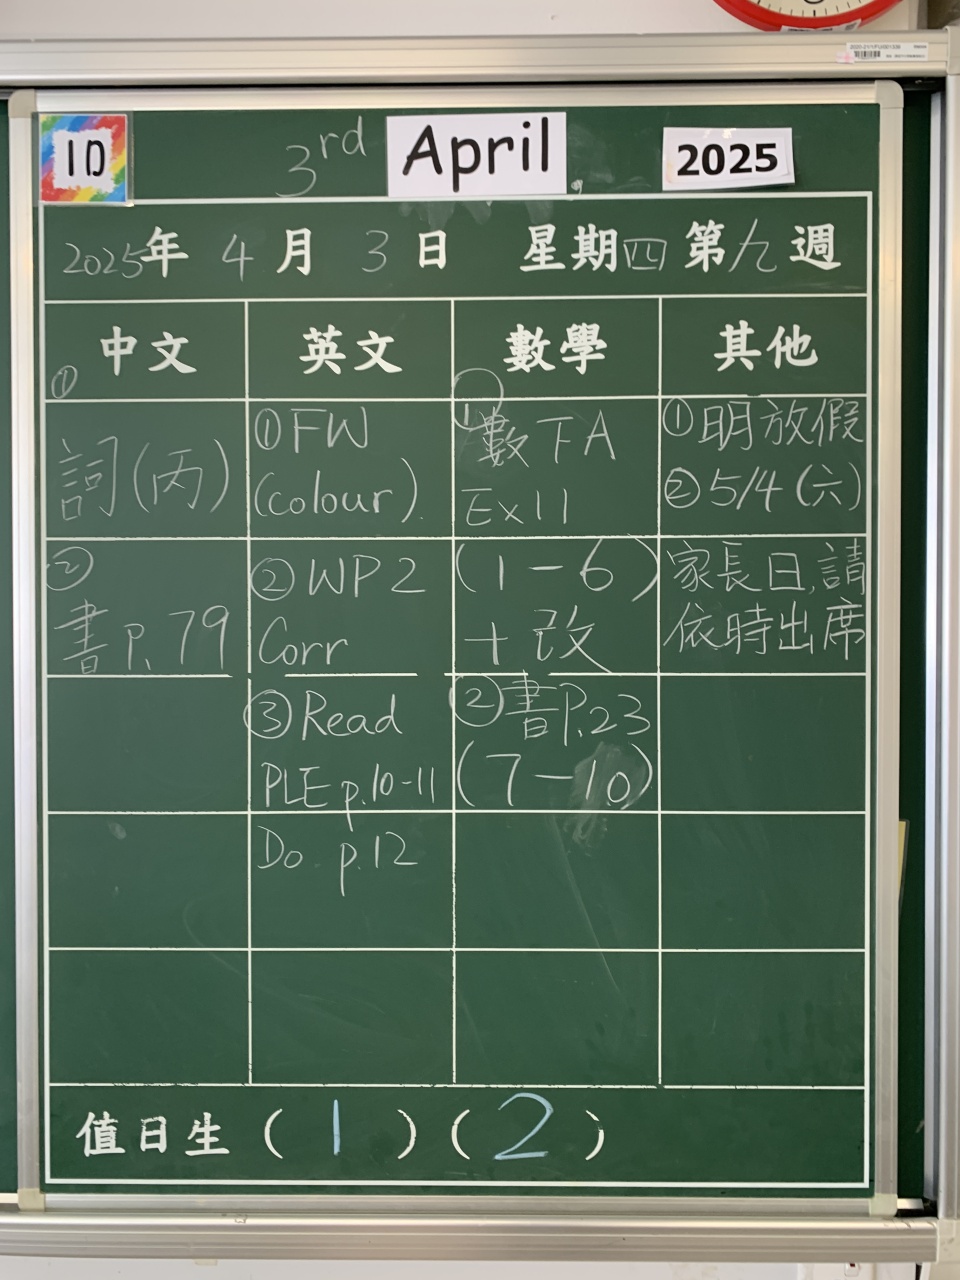 1D 3rd April 2025
2025年 4月 3日 星期四 第九週
中文 英文 數學 其他
①
詞(丙)
②
書P.79
①FW
(colour).
②WP2
Corr
③Read
PLE p.10-11
Do p.12
①數下A
Ex11
(1-6)
+改
②書P.23
(7-10)
①明放假
②5/4(六)
家長日,請
依時出席
值日生(1)(2)